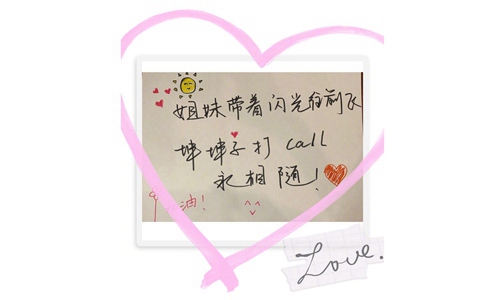 姐妹带着闪光往前飞
坤坤子打call
永相随!
油!
Love.